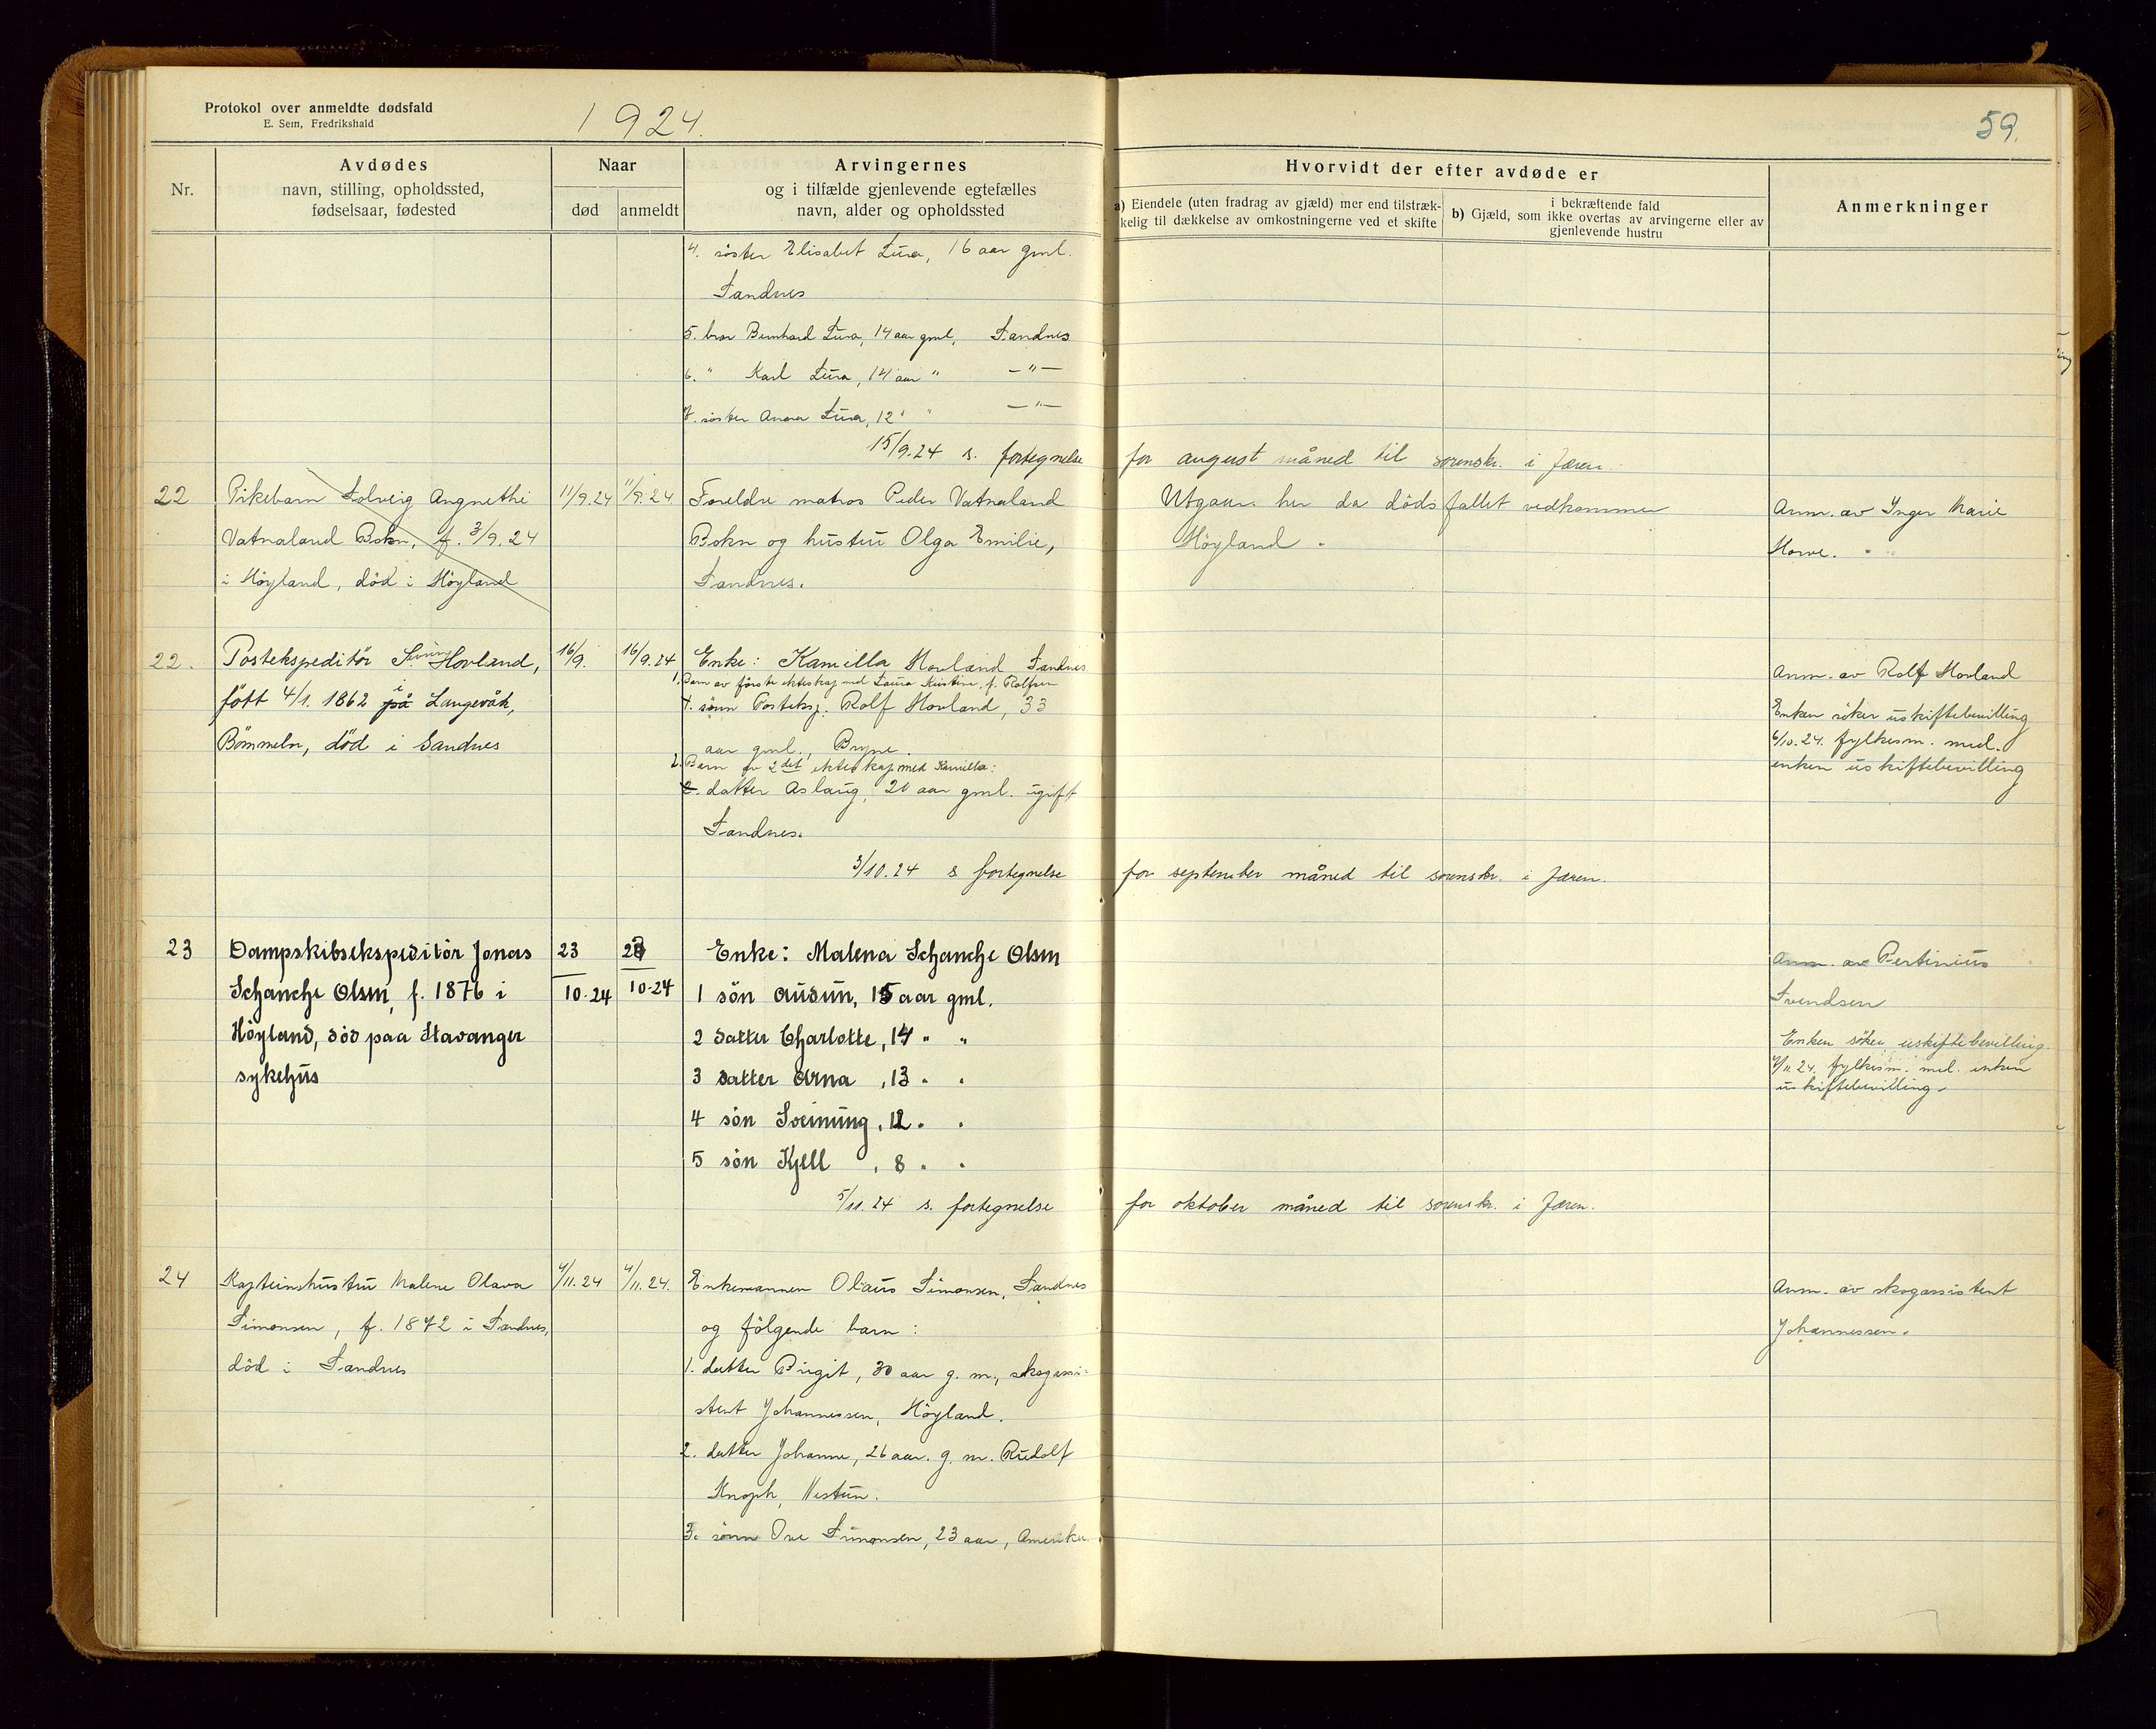 Protokol over anmeldte dødsfald
E. Sem, Fredrikshald
1924.
59.
Nr.
Avdødes
navn, stilling, opholdssted,
fødselsaar, fødested
Naar
død
anmeldt
Arvingernes
og i tilfælde gjenlevende egtefælles
navn, alder og opholdssted
Hvorvidt der efter avdøde er
a) Eiendele (uten fradrag av gjæld) mer end tilstræk-
kelig til dækkelse av omkostningerne ved et skifte
i bekræftende fald
b) Gjæld, som ikke overtas av arvingerne eller av
gjenlevende hustru
Anmerkninger
4. søster Elisabet Lura, 16 aar gml.
Sandnes
5. bror Bernhard Lura, 14 aar gml, Sandnes
6. " Karl Lura, 14 aar " —"—
7. søster Anna Lura, 12 " " —"—
15/9.24 s. fortegnelse for august måned til sorenskr. i Jæren.
22
Pikebarn Solveig Angnethe
Vatnaland Bokn, f. 3/9.24
i Höyland, död i Höyland
11/9.24
11/9.24
Foreldre matros Peder Vatnaland
Bokn og hustru Olga Emilie,
Sandnes.
Utgaar her da dödsfallet vedkommer
Höyland.
Anm. av Inger Marie
Horve.
22.
Postekspeditör Hovland,
född 4/1. 1862 i på Langevåk,
Bömmeln, död i Sandnes
16/9.
16/9.24
Enke: Kamilla Hovland Sandnes
1. Barn av förste ekteskap med Laura Kristine, f. Rolfsen
1. sönn Posteksp. Rolf Hovland, 33
aar gml., Bryne.
2. Barn av 2det ekteskap med Kamilla:
2. datter Aslaug, 20 aar gml. ugift
Sandnes.
3/10.24 s fortegnelse for september måned til sorenskr. i Jæren.
Anm. av Rolf Hovland
Enken söker uskiftebevilling
6/10.24. fylkesm. med.
enken uskiftebevilling
23
Dampskibsekspeditör Jonas
Schanche Olsen, f. 1876 i
Höyland, död paa Stavanger
sykehus
23
10.24
10-24
Enke: Malena Schanche Olsen
1 sön Audun, 15 aar gml.
2 datter Charlotte, 14 " "
3 datter Arna, 13 " "
4 sön Sveinung, 12 " "
5 sön Kjell, 8 " "
5/11.24 s. fortegnelse for oktober måned til sorenskr. i Jæren.
Anm. av Pertinius
Svendsen
Enken söker uskiftebevilling.
fylkesm. med. enken
uskiftebevilling.
24
Kapteinshustru Malene Olava
Simonsen, f. 1872 i Sandnes,
död i Sandnes
4/11.24
4/11.24.
Enkemannen Olaus Simonsen, Sandnes
og fölgende barn:
1. datter Birgit, 30 aar g. m., skogassi-
stent Johannessen, Höyland.
2. datter Johanne, 26 aar. g. m. Rudolf
Knoph,
3. sönn Ove Simonsen, 23 aar, Amerika.
Anm. av skogassistent
Johannessen.